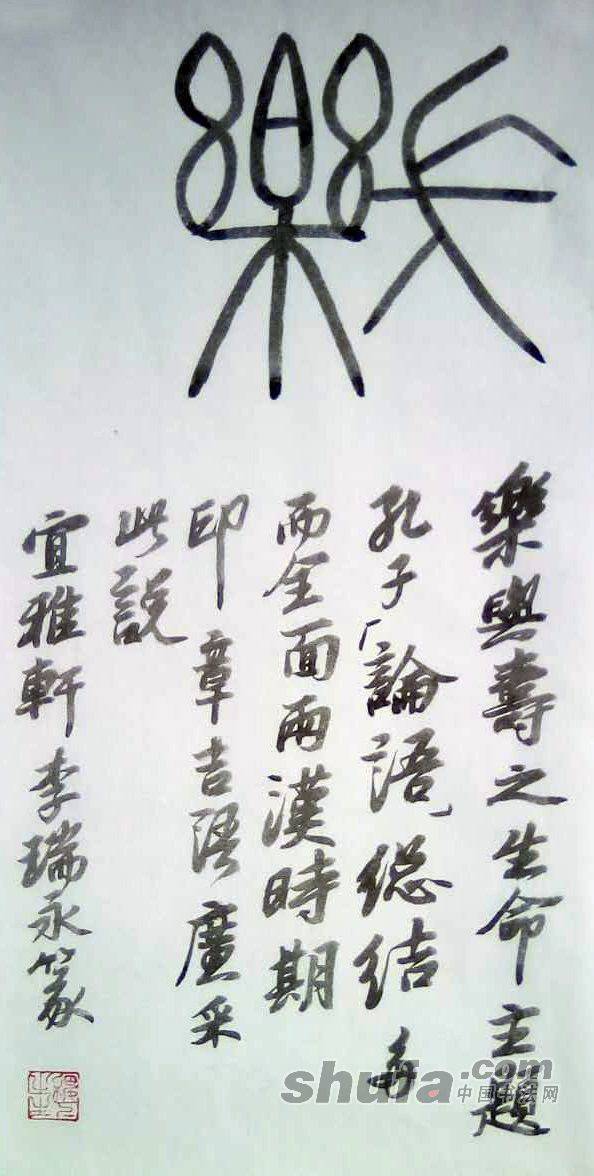 長樂
樂與壽之生命主題
孔子「論語」總結
而全面兩漢時期
印章吉語廣采
此説
宜雅軒李瑞永篆
shufa.com
中国书法网